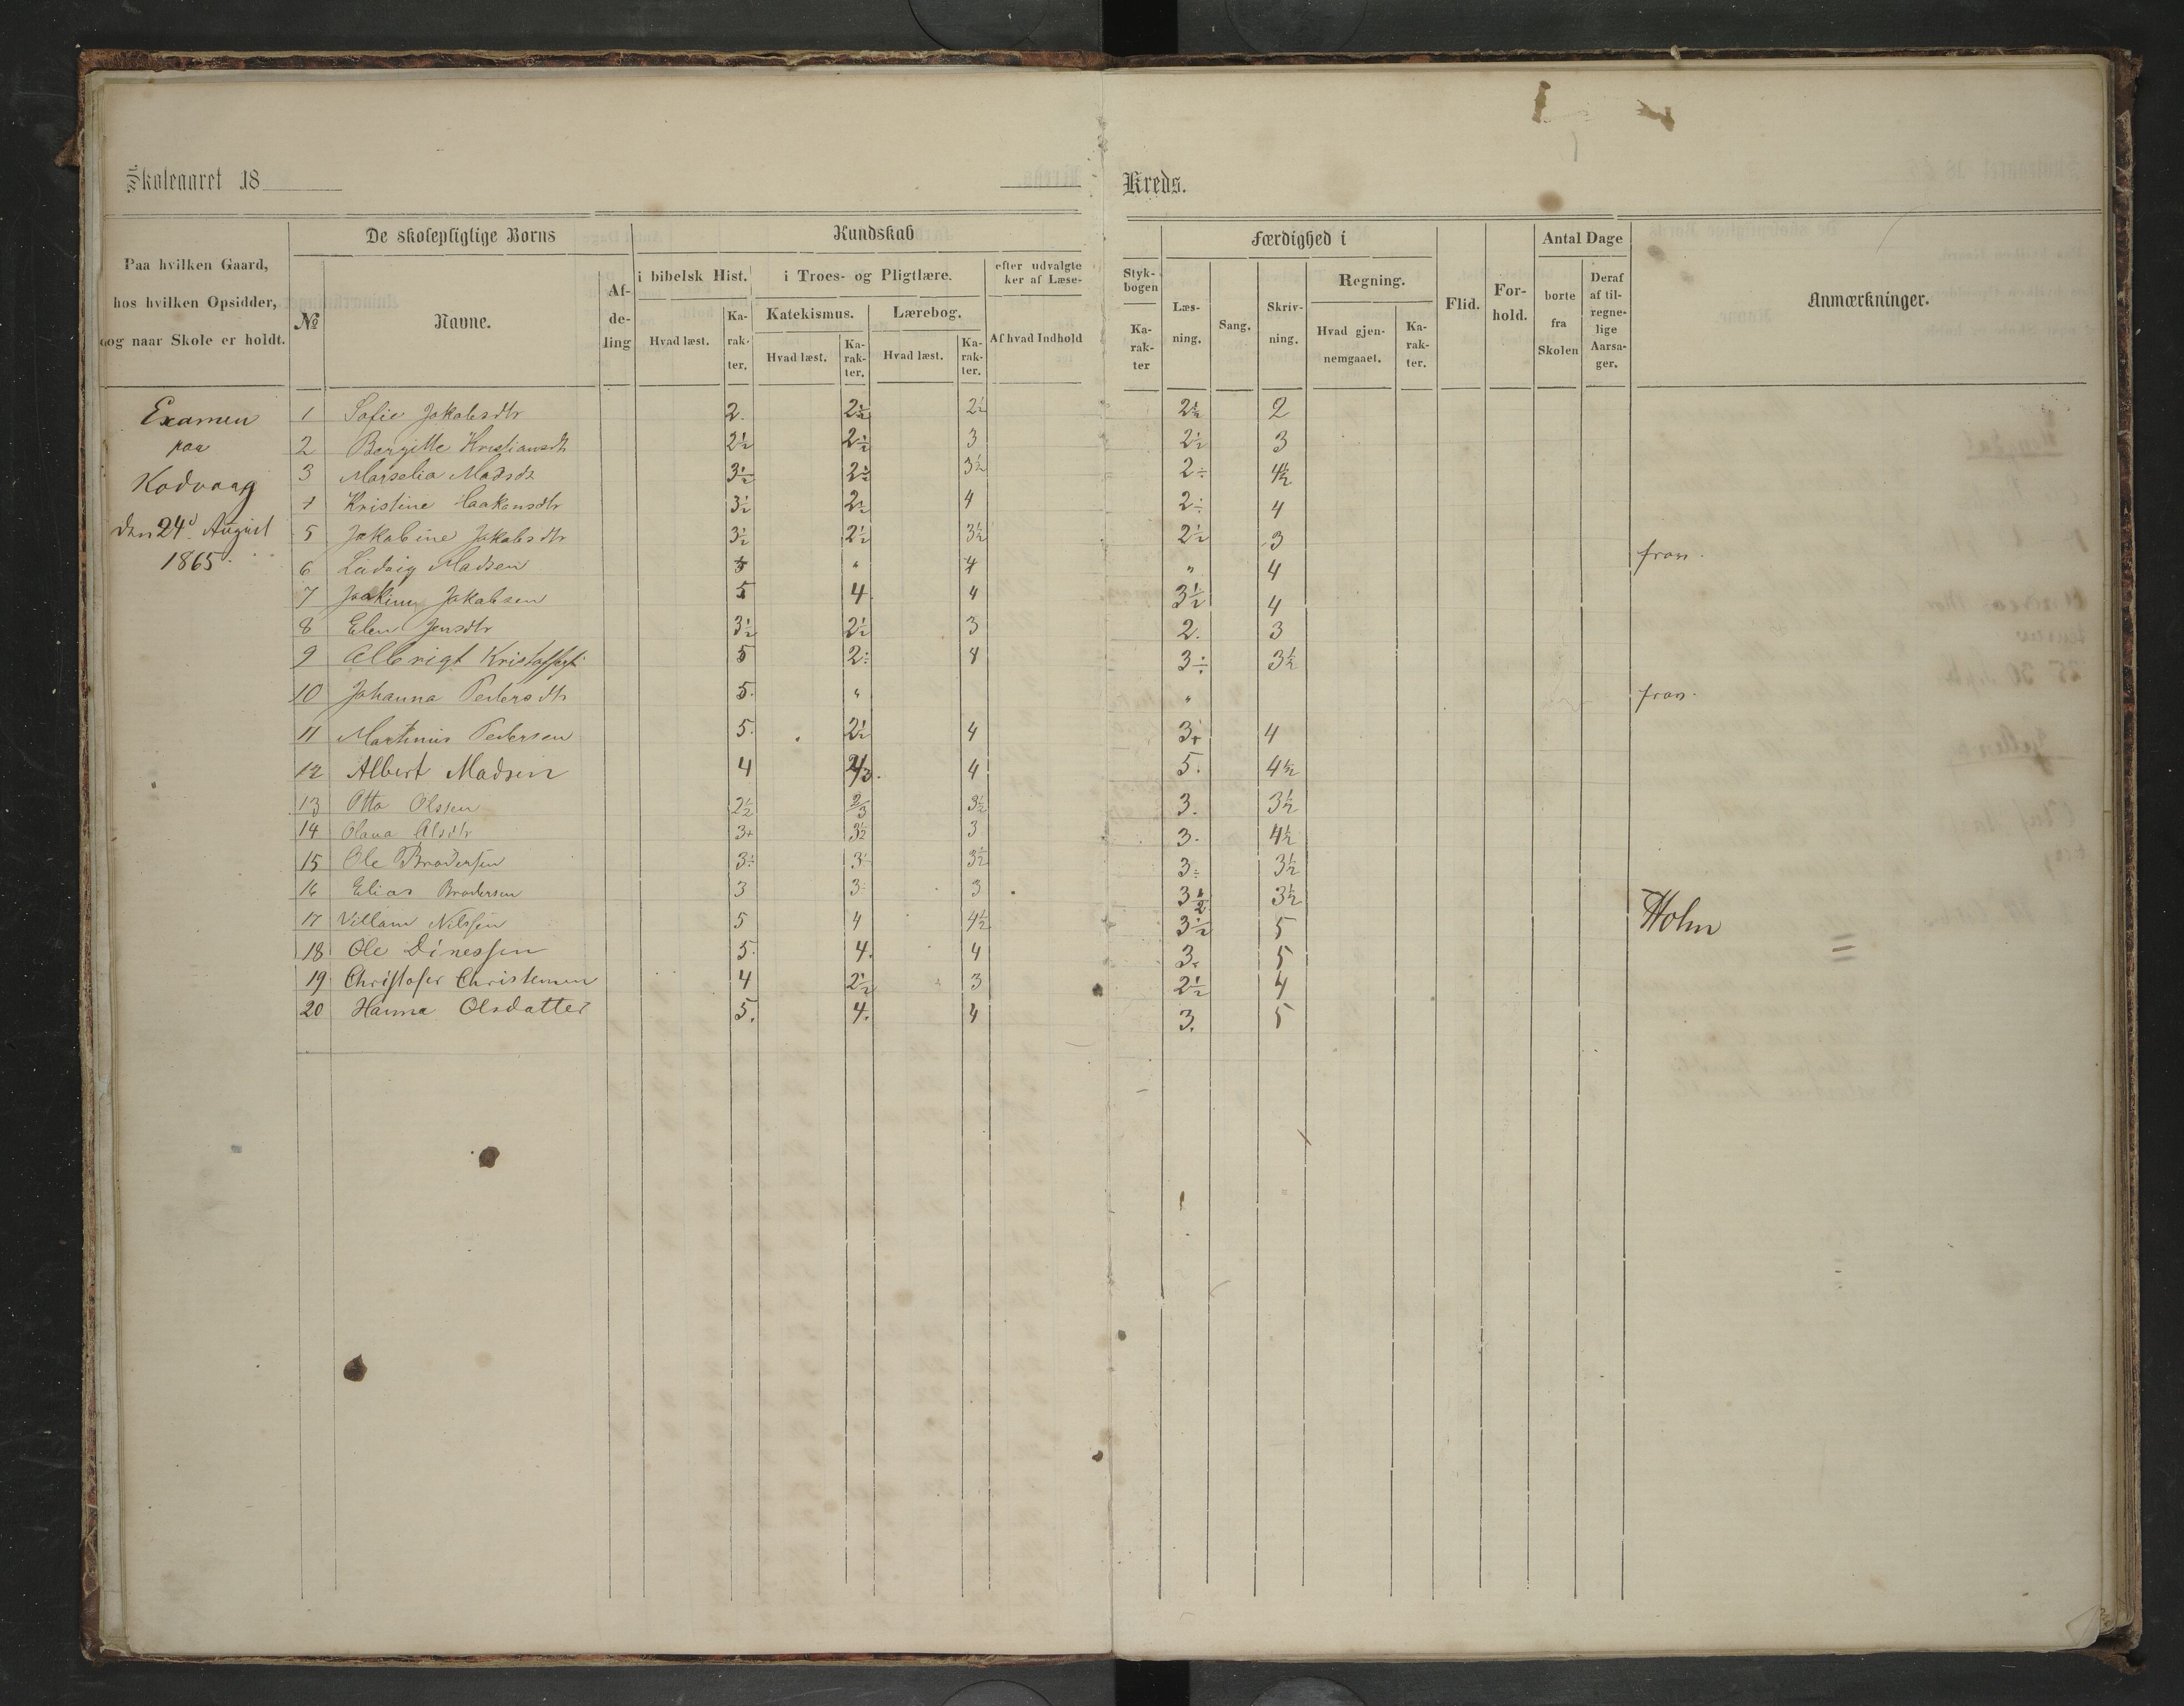 Skoleaaret 18
Kreds.
Paa hvilken Gaard,
hos hvilken Opsidder,
og naar Skole er holdt.
De skolepligtige Børns
№
Navne.
Af-
de-
ling
Kundskab
i bibelsk Hist.
Hvad læst.
Ka-
rak-
ter.
i Troes- og Pligtlære.
Katekismus.
Hvad læst.
Ka-
rak-
ter.
Lærebog.
Hvad læst.
Ka-
rak-
ter.
efter udvalgte
ker af Læse-
Af hvad Indhold
Styk-
bogen
Ka-
rak-
ter
Færdighed i
Læs-
ning.
Sang.
Skriv-
ning.
Regning.
Hvad gjen-
nemgaaet.
Ka-
rak-
ter.
Flid.
For-
hold.
Antal Dage
borte
fra
Skolen
Deraf
af til-
regne-
lige
Aarsa-
ger.
Anmærkninger.
Examen
paa
Kodvaag
den 24d August
1865.
1 Sofie Jakobsdtr 2. 2½ 2½ 2½ 2
2 Bergitte Kristiansdt 2½ 2½ 3 2½ 3
3 Marselia Madsdt 3½ 2½ 3½ 2÷ 4½
4 Kristine Haakonsdtr 3½ 2½ 4 2÷ 4
5 Jakobine Jakobsdtr 3½ 2½ 3½ 2½ 3
6 Ludvig Madsen " 4 " 4 frav.
7 Joakim Jakobsen 5 4 4 3½ 4
8 Elen Jensdtr 3½ 2½ 3 2. 3
9 Albrigt 5 2÷ 4 3÷ 3½
10 Johanna Pedersdtr 5. " " frav.
11 Martinus Pedersen 5. 2½ 4 3+ 4
12 Albert Madsen 4 2/3. 4 5. 4½
13 Otto Olssen 2½ 2/3 3½ 3. 3½
14 Olava Olsdtr 3+ 3½ 3 3. 4½
15 Ole Brodersen 3÷ 3÷ 3½ 3÷ 3½
16 Elias Brodersen 3 3÷ 3 3½ 3½
17 Villam Nilssen 5 4 4½ 3½ 5 Holm
18 Ole Dinessen 5. 4. 4 3. 5 =
19 Christofer Christensen 4 2½ 3 2½ 4
20 Hanna Olsdatter 5. 4. 4 3. 5